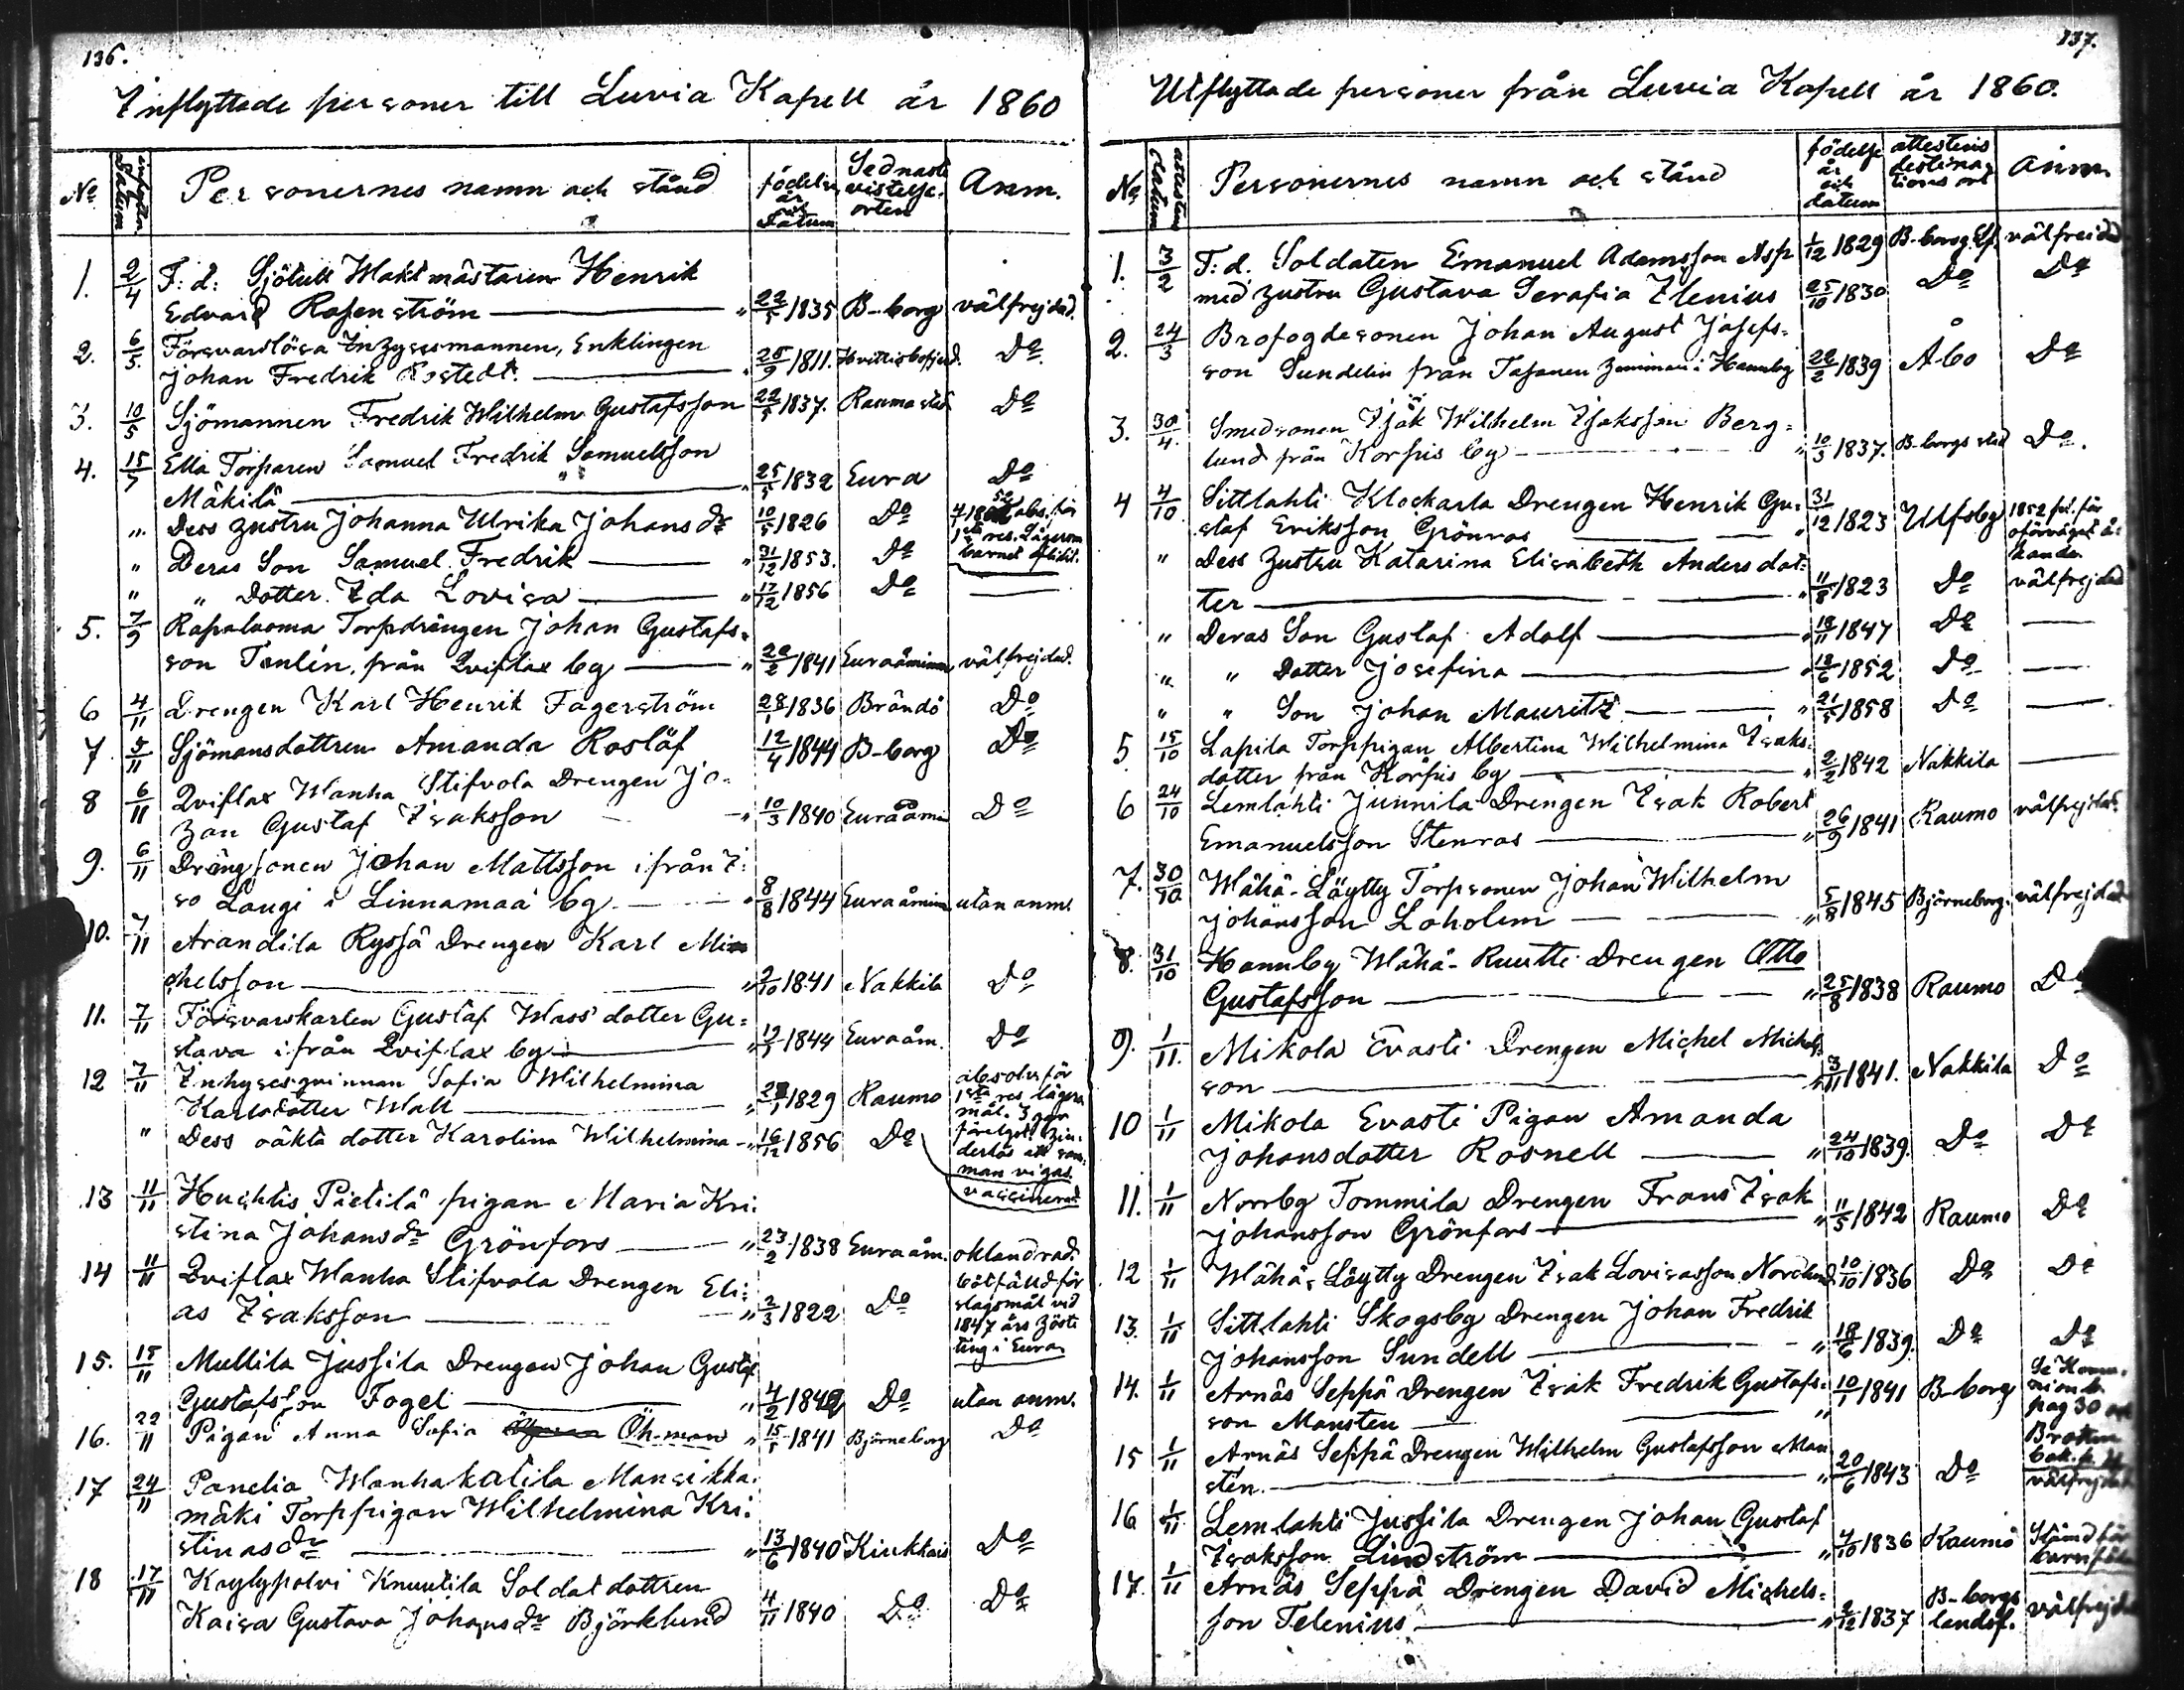 136.
Inflyttade personer till Luvia Kapell år 1860
No
inflyttn. Datum
Personernes namn och stånd
födelse år och datum
Sednaste vistelse-orten
Anm.
1. 2/4 F:d: Sjötull Waktmästaren Henrik
Edvard Rosenström " 22/5 1835 B-borg välfrejdad.
2. 6/5 Försvarslösa Inhysesmannen, Enklingen
Johan Fredrik Rostedt. " 25/9 1811. Hvittisbofjerd. Do
3. 10/5 Sjömannen Fredrik Wilhelm Gustafsson 22/5 1837. Rauma stad Do
4. 15/5 Ella Torparen Samuel Fredrik Samuelsson
Mäkilä " 25/5 1832 Eura Do
" Dess hustru Johanna Ulrika Johansdr 10/5 1826 Do abs. för
1sta res. Lägersm
" Deras Son Samuel Fredrik " 31/12 1853. Do barnet aflidit.
" " Dotter Ida Lovisa " 17/12 1856 Do
5. 7/9 Rapaluoma Torpdrängen Johan Gustafs-
son Tenlén, från Qviflax by " 22/2 1841 Euraåminne välfrejdad.
6 4/11 Drengen Karl Henrik Fagerström 28/1 1836 Brändö Do
7 5/11 Sjömansdottren Amanda Roslöf 12/4 1844 B-borg Do
8 6/11 Qviflax Wanha Stifvola Drengen Jo-
han Gustaf Isaksson " 10/3 1840 Euraåmin Do
9. 6/11 Drängsonen Johan Mattsson ifrån I-
so Laugi i Linnamaa by " 8/8 1844 Euraåminn utan anm.
10. 7/11 Arandila Ryssä Drengen Karl Mi
chelsson " 2/10 1841 Nakkila Do
11. 7/11 Försvarskarlen Gustaf Wass' dotter Gu-
stava ifrån Qviflax by " 1844 Euraåm. Do
12 7/11 Inhysesqvinnan Sofia Wilhelmina
Karlsdotter Wall " 1829 Raumo absolv. för
1sta res. lägers
mål. 3 gor
" Dess oäkta dotter Karolina Wilhelmina " 16/12 1856 Do förelyst hin-
derlös att som-
man vigas.
vaccinerad
13 11/11 Huchtis Pietilä pigan Maria Kri-
stina Johansdr Grönfors " 23/2 1838 Euraåm. oklandrad.
14 11/11 Qviflax Wanha Stifvola Drengen Eli-
as Isaksson " 2/3 1822 Do bötfälld för
slagsmål vid
1847 års höste
ting i Eura.
15. 15/11 Mullila Jussila Drengen Johan Gustaf
Gustafsson Fogel " 4/2 1842 Do utan anm.
16. 22/11 Pigan Anna Sofia Öhman " 1841 Björneborg Do
17 24/11 Panelia Wanhakatila Mansikka-
mäki Torppigan Wilhelmina Kri-
stinasdr " 13/6 1840 Kiukkais Do
18 17/11 Köylypolvi Knuutila Soldatdottren
Kaisa Gustava Johansdr Björklund 4/11 1840 Do Do
137.
Utflyttade personer från Luvia Kapell år 1860.
No
attestens datum
Personernes namn och stånd
födelse år och datum
attestens destinations ort
Anm.
1. 3/2 F:d. Soldaten Emanuel Adamsson Asp 1/12 1829 B-borgs lf. välfrejdad
med hustru Gustava Serafia Ilenius 25/10 1830 Do Do
2. 24/3 Brofogdesonen Johan August Josefs-
son Sundelin från Tasanen hemman i Hannby 22/2 1839 Åbo Do
3. 30/4. Smedsonen Isak Wilhelm Isaksson Berg-
lund från Korpis by " 10/3 1837. B-borgs stad Do.
4 4/10 Sittlahti Klockarla Drengen Henrik Gu-
staf Eriksson Grönroos " 31/12 1823 Ulfsby 1852 för
oförväget å-
kande.
" Dess hustru Katarina Elisabeth Andersdot-
ter " 11/8 1823 Do välfrejdad
" Deras Son Gustaf Adolf " 1847 Do
" " Dotter Josefina " 18/6 1852 Do
" " Son Johan Mauritz " 21/5 1858 Do
5 15/10 Lapila Torppigan Albertina Wilhelmina Isaks-
dotter från Korpis by " 2/2 1842 Nakkila
6 24/10 Lemlahti Junnila Drengen Isak Robert
Emanuelsson Stenroos " 26/9 1841 Raumo välfrejdad.
7. 30/10 Wähä-Löytty Torpsonen Johan Wilhelm
Johansson Loholm " 5/8 1845 Björneborg. välfrejdad
8. 31/10 Hannby Wähä-Ruutti Drengen Otto
Gustafsson " 25/8 1838 Raumo Do
9. 1/11. Mikola Evasti Drengen Michel Michels-
son " 3/11 1841. Nakkila Do
10 1/11 Mikola Evasti Pigan Amanda
Johansdotter Rosnell " 24/10 1839. Do Do
11. 1/11 Norrby Tommila Drengen Frans Isak
Johansson Grönfors " 11/5 1842 Raumo Do
12 1/11 Wähä-Löytty Drengen Isak Lovisasson Nordlund 10/10 1836 Do Do
13. 1/11 Sittlahti Skogsby Drengen Johan Fredrik
Johansson Sundell " 18/6 1839. Do Do
14. 1/11 Arnäs Seppä Drengen Isak Fredrik Gustafs- 10/1 1841 B-borg Se Kommunionb.
son Mansten " pag 30 och
Brottm
15 1/11 Arnäs Seppä Drengen Wilhelm Gustafsson Man bok. p.
stén. " 20/6 1843 Do välfrejdad
16 1/11 Lemlahti Jussila Drengen Johan Gustaf
Isaksson Lindström " 4/10 1836 Raumo Stämd för
barnföda
17. 1/11 Arnäs Seppä Drengen David Michels-
son Telenius " 2/12 1837 B-borgs landsf. välfrejdad